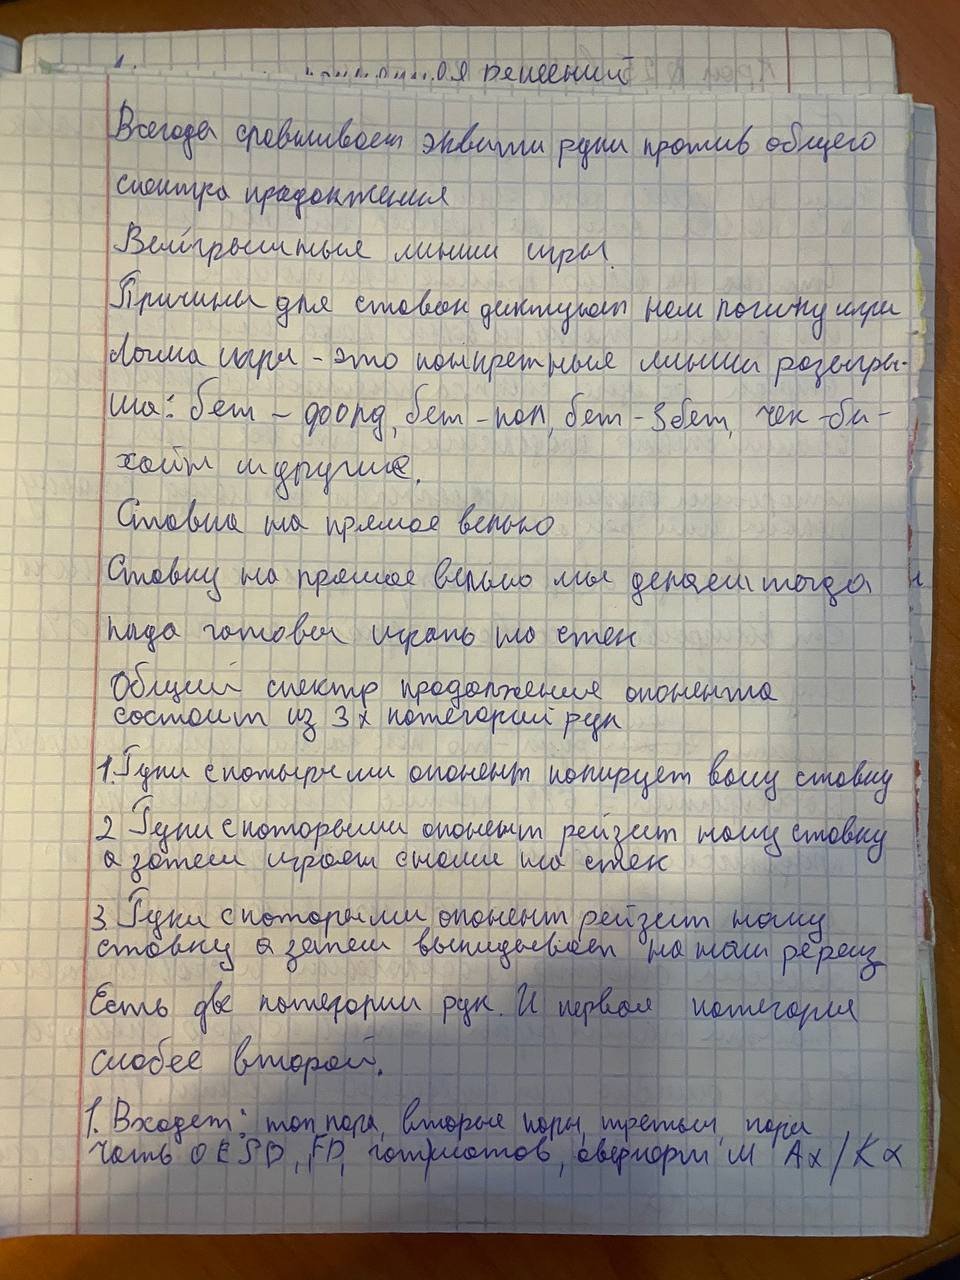 решений
Всегда сравниваем эквити руки против общего
спектра продолжения
Выйгрышные линии игры.
Причины для ставок диктуют нам логику игры
Логика игры - это конкретные линии розыгры-
ша: бет - фолд, бет - кол, бет - 3бет, чек - би-
хайн и другие.
Ставка на прямое велью
Ставку на прямое велью мы делаем тогда
когда готовы играть на стек
Общий спектр продолжения опонента
состоит из 3х категорий рук
1. Руки с которыми опонент колирует вашу ставку
2 Руки с которыми опонент рейзит нашу ставку
а затем играет с нами на стек
3 Руки с которыми опонент рейзит нашу
ставку а затем выкидывает на наш ререйз
Есть две категории рук. И первая категория
слабее второй.
1. Входет: топ пара, вторые пары, третьи, пары
часть OESD, FD, готшотов, оверкарт и Ax/Kx